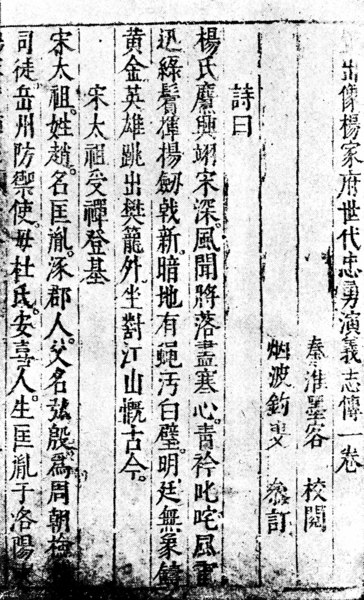 出像楊家府世代忠勇演義志傳一卷
秦淮墨客 校閱
烟波釣叟 參訂
詩曰
楊氏麾興翊宋深。風聞將落盡塞心。青衿叱咤風雷
迅綠鬢揮揚劒戟新。暗地有蠅汚白璧。明廷無象鑄
黃金英雄跳出樊籠外坐對江山慨古今。
宋太祖受禪登基
宋太祖。姓趙。名匡胤。涿郡人。父名弘殷爲周朝檢
司徒。岳州防禦使。母杜氏。安喜人。生匡胤于洛陽